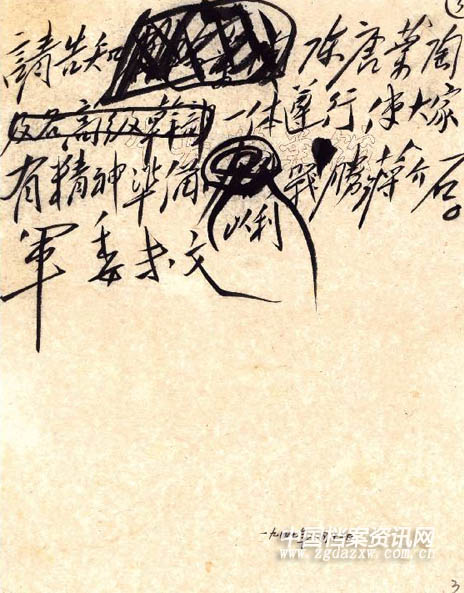 3
請告知 陈唐葉陶
及各高级幹部一体遵行,使大家
有精神準备 以利 戰勝蒋介石。
軍委未文
中国档案资讯网
www.zgdazxw.com.cn
3